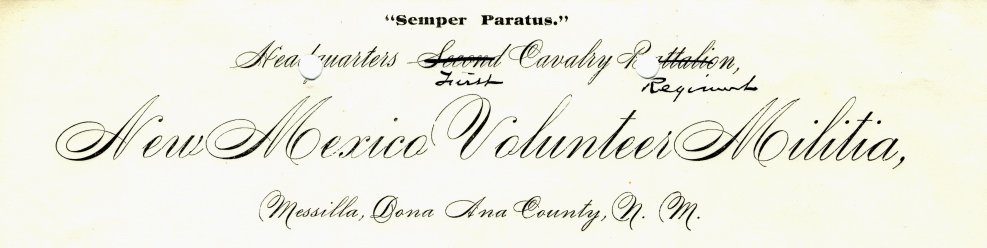 "Semper Paratus."
Headquarters Second Cavalry Battalion,
First Regiment
New Mexico Volunteer Militia,
Messilla, Dona Ana County, N. M.